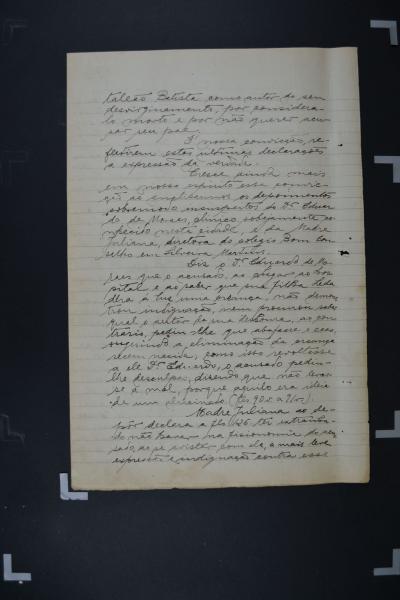 talcão Batista como autor do seu
desvirginamento, por considera-
lo morto e por não querer acu-
sar seu pae.
É nossa convicção, re-
flectirem estas ultimas declarações
a expressão da verdade.
Cresce ainda mais
em nosso espirito essa convic-
ção ao os depoimentos
sobremodo insuspeitos do Dr. Eduar-
do de Moraes, clinico sobejamente co-
nhecido nesta cidade, e da Madre
Juliana, diretora do colegio Bom Con-
selho em Silveira Martins.
Diz o Dr. Eduardo de Mo-
raes que o acusado, ao chegar ao hos-
pital e ao saber que sua filha ha
dera á luz uma creança, não demos-
trou indignação, nem procurou saber
qual o autor da sua deshonra, ao con-
trario, pediu-lhe que abafasse o caso,
sugerindo a eliminação da creança
recem nascida, como isso revoltasse
a ele Dr. Eduardo, o acusado pediu-
lhe desculpas, dizendo que não levas-
se á mal, porque aquilo era idéia
de um (fls. 90 v. a 91 v.).
Madre Juliana ao de-
pôr declara a fls. 126, ter extranha-
do não haver na fisionomia do acu-
sado, ao se avistar com ela, a mais leve
expressão de indignação contra esse